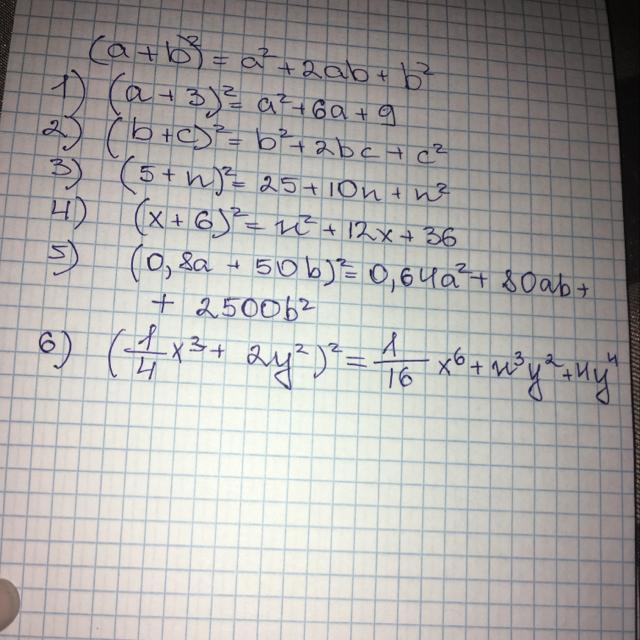 (a+b)² = a² + 2ab + b²
1) (a+3)² = a² + 6a + 9
2) (b+c)² = b² + 2bc + c²
3) (5+n)² = 25 + 10n + n²
4) (x+6)² = x² + 12x + 36
5) (0,8a + 50b)² = 0,64a² + 80ab +
+ 2500b²
6) (1/4 x³ + 2y²)² = 1/16 x⁶ + x³y² + 4y⁴